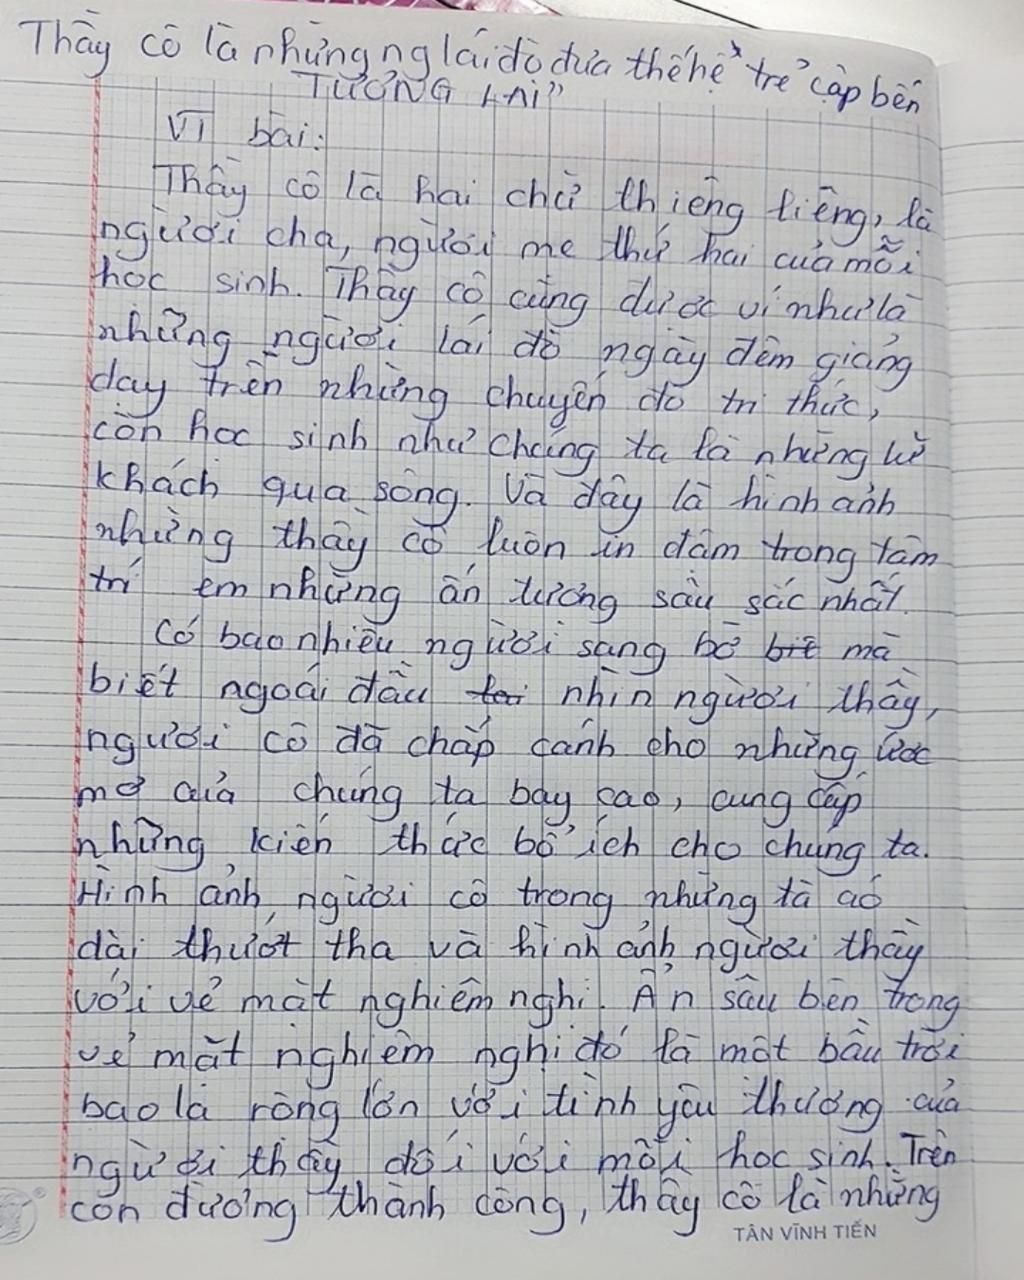 Thầy cô là những ng lái đò đưa thế hệ trẻ cập bến
TƯƠNG LAI"
VI bài:
Thầy cô là hai chữ thiêng liêng, là
người cha, người mẹ thứ hai của mỗi
học sinh. Thầy cô cũng được ví như là
những người lái đò ngày đêm giảng
dạy trên những chuyến đò tri thức,
còn học sinh như chúng ta là những kẻ
khách qua sông. Và đây là hình ảnh
những thầy cô luôn in đậm trong tâm
trí em những ấn tượng sâu sắc nhất.
Có bao nhiêu người sang bờ biê mà
biết ngoái đầu lại nhìn người thầy,
người cô đã chắp cánh cho những ước
mơ của chúng ta bay cao, cung cấp
những kiến thức bổ ích cho chúng ta.
Hình ảnh người cô trong những tà áo
dài thướt tha và hình ảnh người thầy
với vẻ mặt nghiêm nghị. Ẩn sâu bên trong
vẻ mặt nghiêm nghị đó là một bầu trời
bao la rộng lớn với tình yêu thương của
người thầy đối với mỗi học sinh. Trên
con đường thành công, thầy cô là những
TÂN VĨNH TIẾN